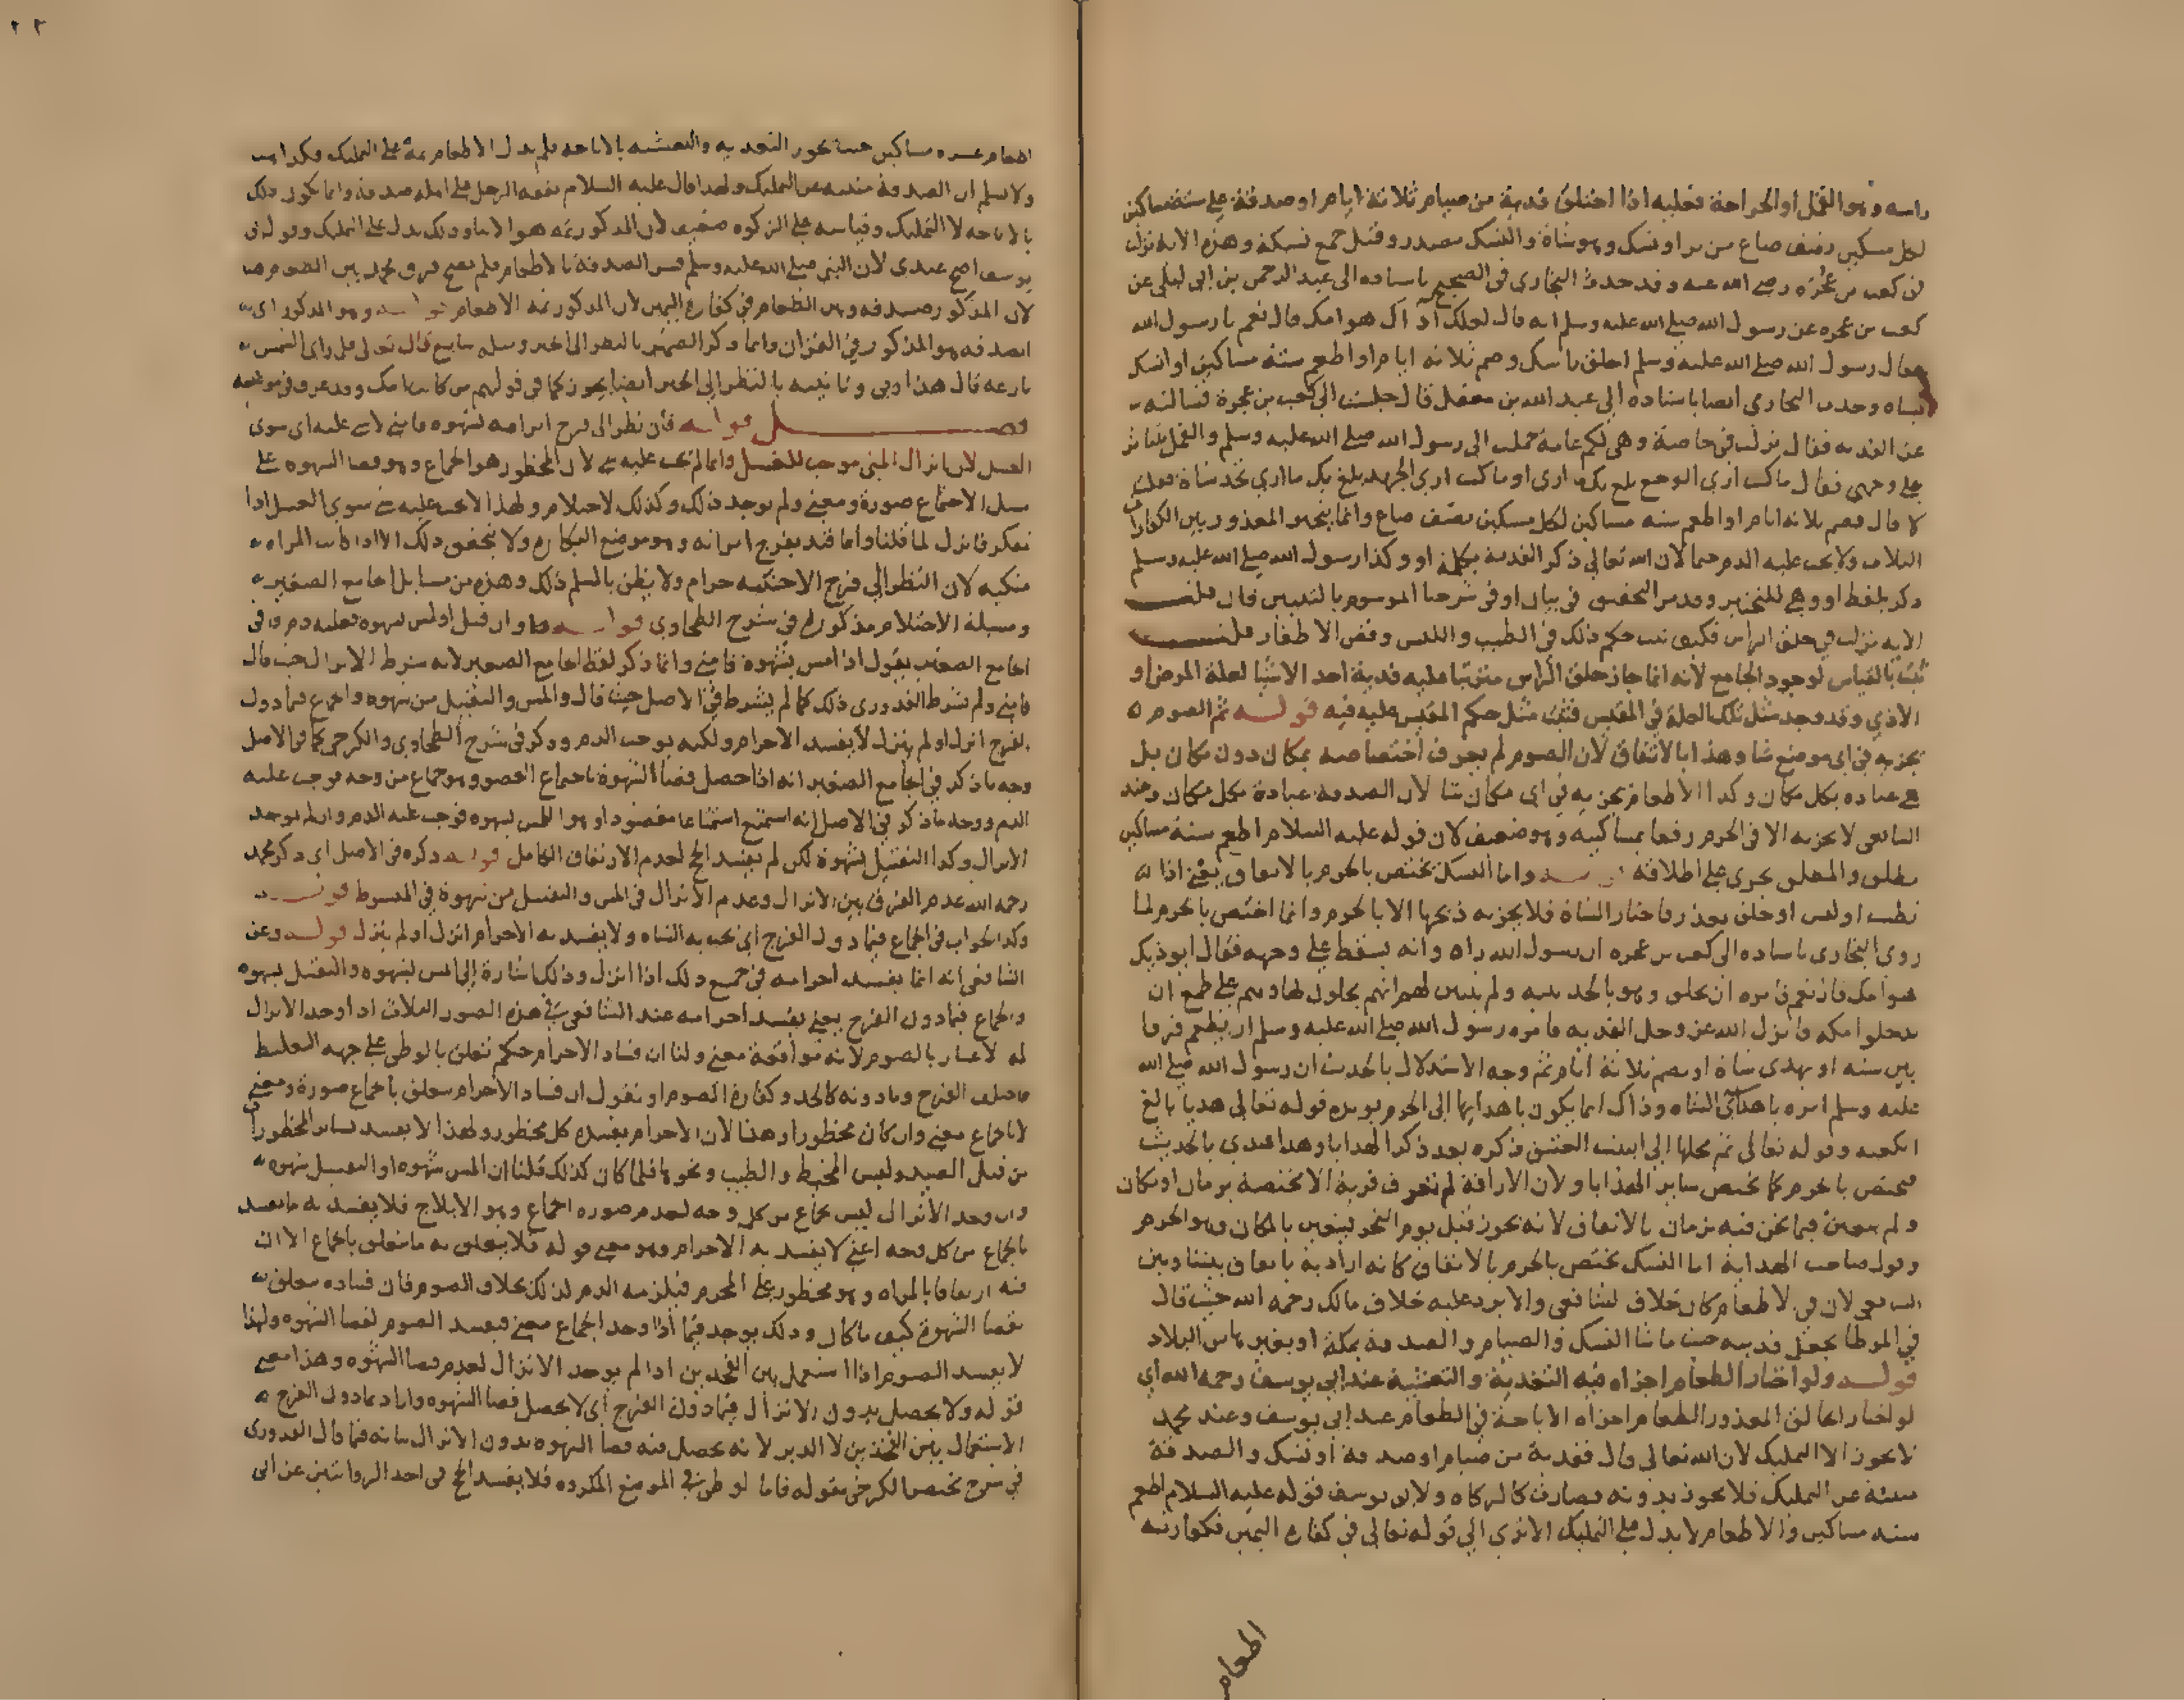 راسه وهو القمل او الجراحة فعليه اذا احتلق فدية من صيام ثلاثة ايام او صدقة على ستة مساكين
لكل مسكين نصف صاع من بر او نسك وهو شاة والنسك مصدر وقيل جمع نسكة وهذه الاية نزلت
في كعب بن عجرة رضي الله عنه وقد حدث البخاري في الصحيح باسناده الى عبد الرحمن بن ابي ليلى عن
كعب بن عجره عن رسول الله صلى الله عليه وسلم انه قال لعلك آذاك هوامك قال نعم يا رسول الله
فقال رسول الله صلى الله عليه وسلم احلق راسك وصم ثلاثه ايام او اطعم ستة مساكين او انسك
بشاه وحدث البخاري ايضا باسناده الى عبد الله بن معقل قال جلست الى كعب بن عجرة فسالته
عن الفديه فقال نزلت في خاصة وهي لكم عامة حملت الى رسول الله صلى الله عليه وسلم والقمل يتناثر
على وجهي فقال ما كنت اري الوجع بلغ بك ما اري او ما كنت اري الجهد بلغ بك ما اري تجد شاة فقلت
لا قال فصم ثلاثه ايام او اطعم سته مساكين لكل مسكين نصف صاع وانما يخير المعذور بين الكفارات
الثلاث ولا يجب عليه الدم حتما لان الله تعالى ذكر الفدية بكلمة او وكذا رسول الله صلى الله عليه وسلم
ذكر بلفظ او وهي للتخيير وقد مر التحقيق في بيان او في شرحنا الموسوم بالتبيين فان قلت
الايه نزلت في حلق الراس فكيف ثبت حكم ذلك في الطيب واللبس وقص الاظفار قلت
ثبت بالقياس لوجود الجامع لانه انما جاز حلق الراس مترتبا عليه فدية احد الاشيا لعلة المرض او
الاذي وقد وجد مثل تلك العلة في المقيس فثبت مثل حكم المقيس عليه فيه قوله ثم الصوم
يجزيه في اي موضع شا وهذا بالاتفاق لان الصوم لم يعرف اختصاصه بمكان دون مكان بل
هي عباده بكل مكان وكذا الاطعام يجزيه في اي مكان شا لان الصدقه عبادة بكل مكان وعند
الشافعي لا يجزيه الا في الحرم رفقا بمساكينه وهو ضعيف لان قوله عليه السلام اطعم ستة مساكين
مطلق والمطلق يجري على اطلاقه قوله واما النسك يختص بالحرم بالاتفاق يعني اذا
تطيب او لبس او حلق بعذر فاختار الشاة فلا يجزيه ذبحها الا بالحرم وانما اختص بالحرم لما
روى البخاري باسناده الى كعب بن عجره ان رسول الله راه وانه يسقط على وجهه فقال ايوذيك
هوامك قال نعم فامره ان يحلق وهو بالحديبيه ولم يتبين لهم انهم يحلون بها وهم على طمع ان
يدخلوا مكه فانزل الله عز وجل الفديه فامره رسول الله صلى الله عليه وسلم ان يطعم فرقا
بين سته او يهدي شاة او يصم ثلاثة ايام ثم وجه الاستدلال بالحديث ان رسول الله صلى الله
عليه وسلم امره باهداء الشاه وذاك انما يكون باهدايها الى الحرم يويده قوله تعالى هديا بالغ
الكعبه وقوله تعالى ثم محلها الى البيت العتيق ذكره بعد ذكر الهدايا وهذا هدي بالحديث
فيختص بالحرم كما يختص ساير الهدايا ولان الاراقة لم تعرف قربة الا مختصة بزمان او مكان
ولم يتعين فيما نحن فيه بزمان بالاتفاق لانه يجوز قبل يوم النحر فيتعين بالمكان وهو الحرم
وقول صاحب الهداية اما النسك يختص بالحرم بالاتفاق كانه اراد به باتفاق بيننا وبين
الشافعي لان في الاطعام كان خلاف الشافعي والا يرد عليه خلاف مالك رحمه الله حيث قال
في الموطا يجعل فديته حيث ما شا النسك والصيام والصدقة بمكة او بغيرها من البلاد
قوله ولو اختار الطعام اجزاه فيه التغدية والتعشية عند ابي يوسف رحمه الله اي
لو اختار الحالق المعذور الطعام اجزاه الاباحة في الطعام عند ابي يوسف وعند محمد
لا يجوز الا التمليك لان الله تعالى قال ففدية من صيام او صدقة او نسك والصدقة
منبئة عن التمليك فلا يجوز بدونه فصارت كالزكاه ولابي يوسف قوله عليه السلام اطعم
سته مساكين والاطعام لا يدل على التمليك الا تري الى قوله تعالى في كفاره اليمين فكفارته
اطعام
٢٢
اطعام عشره مساكين حيث يجوز التغديه والتعشيه بالاباحه فلم يدل الاطعام ثمة على التمليك فكذا هنا
ولا نسلم ان الصدقة منبيه عن التمليك ولهذا قال عليه السلام نفقه الرجل على اهله صدقة وانما يكون ذلك
بالاباحه لا التمليك وقياسه على الزكوه ضعيف لان المذكور ثمه هو الايتا وذلك يدل على التمليك وقول ابي
يوسف اصح عندي لان النبي صلى الله عليه وسلم فسر الصدقة بالاطعام فلم يصح فرق محمد بين الطعام هنا
لان المذكور صدقه وبين الطعام في كفارة اليمين لان المذكور ثمه الاطعام قوله وهو المذكور اي
الصدقه هو المذكور في القران وانما ذكر الضمير بالنظر الى خبره ومثله سايغ قال تعالى فلما راى الشمس
بازغه قال هذا ربي وتانيثه بالنظر الى الخبر ايضا يجوز كما في قولهم من كانت امك وقد عرف في موضعه
فصل قوله فان نظر الى فرج امراته بشهوه فامنى لا شي عليه اي سوى
الغسل لان انزال المني موجب للغسل وانما لم يجب عليه شي لان المحظور هو الجماع وهو قضا الشهوه على
سبيل الاجتماع صورة ومعنى ولم يوجد ذلك وكذلك الاحتلام ولهذا لا يجب عليه شي سوى الغسل اذا
تفكر فانزل لما قلنا وانما قيد بفرج امراته وهو موضع البكاره ولا يتحقق ذلك الا اذا كانت المراه
منكبه لان النظر الى فرج الاجنبيه حرام ولا يظن بالمسلم ذلك وهذه من مسايل الجامع الصغير
ومسيلة الاحتلام مذكورة في شرح الطحاوي قوله وان قبل او لمس بشهوه فعليه دم وفي
الجامع الصغير يقول اذا لمس بشهوة فامنى وانما ذكر لفظ الجامع الصغير لانه شرط الانزال حيث قال
فامنى ولم يشرط القدوري ذلك كما لم يشرط في الاصل حيث قال واللمس والتقبيل من شهوه والجماع فيما دون
الفرج انزل او لم ينزل لا يفسد الاحرام ولكنه يوجب الدم وذكر في شرح الطحاوي والكرخي كما في الاصل
وجه ما ذكر في الجامع الصغير انه اذا حصل قضا الشهوة باجتماع العضو وهو جماع من وجه فوجب عليه
الدم ووجه ما ذكر في الاصل انه استمتع استمتاعا مقصودا وهو اللمس بشهوه فوجب عليه الدم وان لم يوجد
الانزال وكذا التقبيل بشهوة لكن لم يفسد الحج لعدم الارتفاق الكامل قوله ذكره في الاصل اي ذكر محمد
رحمه الله عدم الفرق بين الانزال وعدم الانزال في المس والتقبيل من شهوة في المبسوط قوله
وكذا الجواب في الجماع فيما دون الفرج اي يجب به الشاه ولا يفسد به الاحرام انزل او لم ينزل قوله وعن
الشافعي انه انما يفسد احرامه في جميع ذلك اذا انزل وذلك اشارة الى المس بشهوه والتقبيل بشهوه
والجماع فيما دون الفرج يعني يفسد احرامه عند الشافعي في هذه الصور الثلاث اذا وجد الانزال
له الاعتبار بالصوم لانه موافقة معنى ولنا ان فساد الاحرام حكم تعلق بالوطي على جهه التغليظ
فاختلف الفرج وما دونه كالحد وكفارة الصوم او نقول ان فساد الاحرام متعلق بالجماع صورة ومعنى
لا بالجماع معنى وان كان محظورا وهذا لان الاحرام يفسده كل محظور ولهذا لا يفسد بساير المحظورات
من قتل الصيد ولبس المخيط والطيب ونحوها فلما كان كذلك قلنا ان المس بشهوه او التقبيل بشهوه
وان وجد الانزال ليس بجماع من كل وجه لعدم صوره الجماع وهو الايلاج فلا يفسد به ما يفسد
بالجماع من كل وجه اعني لا يفسد به الاحرام وهو معنى قوله فلا يتعلق به ما يتعلق بالجماع الا ان
فيه ارتفاقا بالمراه وهو محظور على المحرم فيلزمه الدم لذلك بخلاف الصوم فان فساده متعلق
بقضا الشهوة كيف ما كان وذلك يوجد فيما اذا وجد الجماع معنى فيفسد الصوم لقضا الشهوه ولهذا
لا يفسد الصوم اذا استعمل بين الفخذين اذا لم يوجد الانزال لعدم قضا الشهوه وهذا معنى
قوله ولا يحصل بدون الانزال فيما دون الفرج اي لا يحصل قضا الشهوه واراد بما دون الفرج
الاستعمال بين الفخذين لا الدبر لانه يحصل فيه قضا الشهوه بدون الانزال بيانه فيما قال القدوري
في شرح مختصر الكرخي بقوله فاما لو وطئ في الموضع المكروه فلا يفسد الحج في احد الروايتين عن ابي